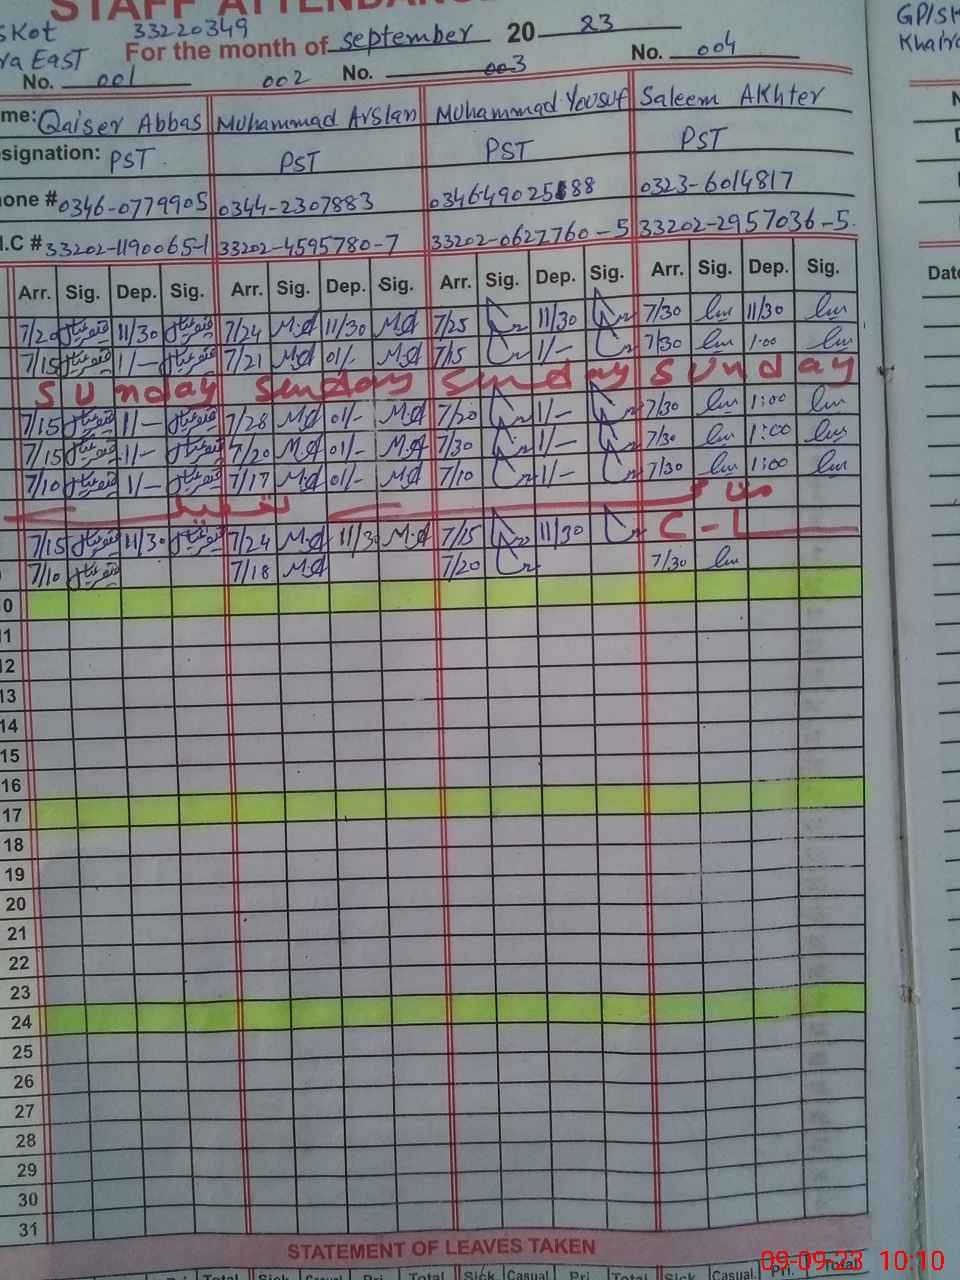 STAFF ATTENDANC
Kot 33220349 GP/SK
ra EasT For the month of september 20 23 Khair
No. 001 002 No. 003 No. 004
me: Qaiser Abbas Muhammad Arslan Muhammad Yousuf Saleem Akhter N
signation: PST PST PST PST
one # 0346-0779905 0344-2307883 03464902588 0323-6014817
I.C # 33202-1190065-1 33202-4595780-7 33202-0627760-5 33202-2957036-5.
Arr. Sig. Dep. Sig. Arr. Sig. Dep. Sig. Arr. Sig. Dep. Sig. Arr. Sig. Dep. Sig. Date
7/20 11/30 7/24 M.A 11/30 M.A 7/25 11/30 7/30 11/30
7/15 1/- 7/21 M.A 01/- M.A 7/15 1/- 7/30 1:00
Sunday Sunday Sunday Sunday
7/15 1/- 7/28 M.A 01/- M.A 7/20 1/- 7/30 1:00
7/15 1/- 7/20 M.A 01/- M.A 7/30 1/- 7/30 1:00
7/10 1/- 7/17 M.A 01/- M.A 7/10 1/- 7/30 1:00
7/15 11/30 7/24 M.A 11/30 M.A 7/15 11/30 C-L
7/10 7/18 M.A 7/20 7/30
0
11
12
13
14
15
16
17
18
19
20
21
22
23
24
25
26
27
28
29
30
31
STATEMENT OF LEAVES TAKEN
Total Sick Casual Pri. Total Sick Casual Pri. Total Sick Casual Pri. Total
09-09-23 10:10